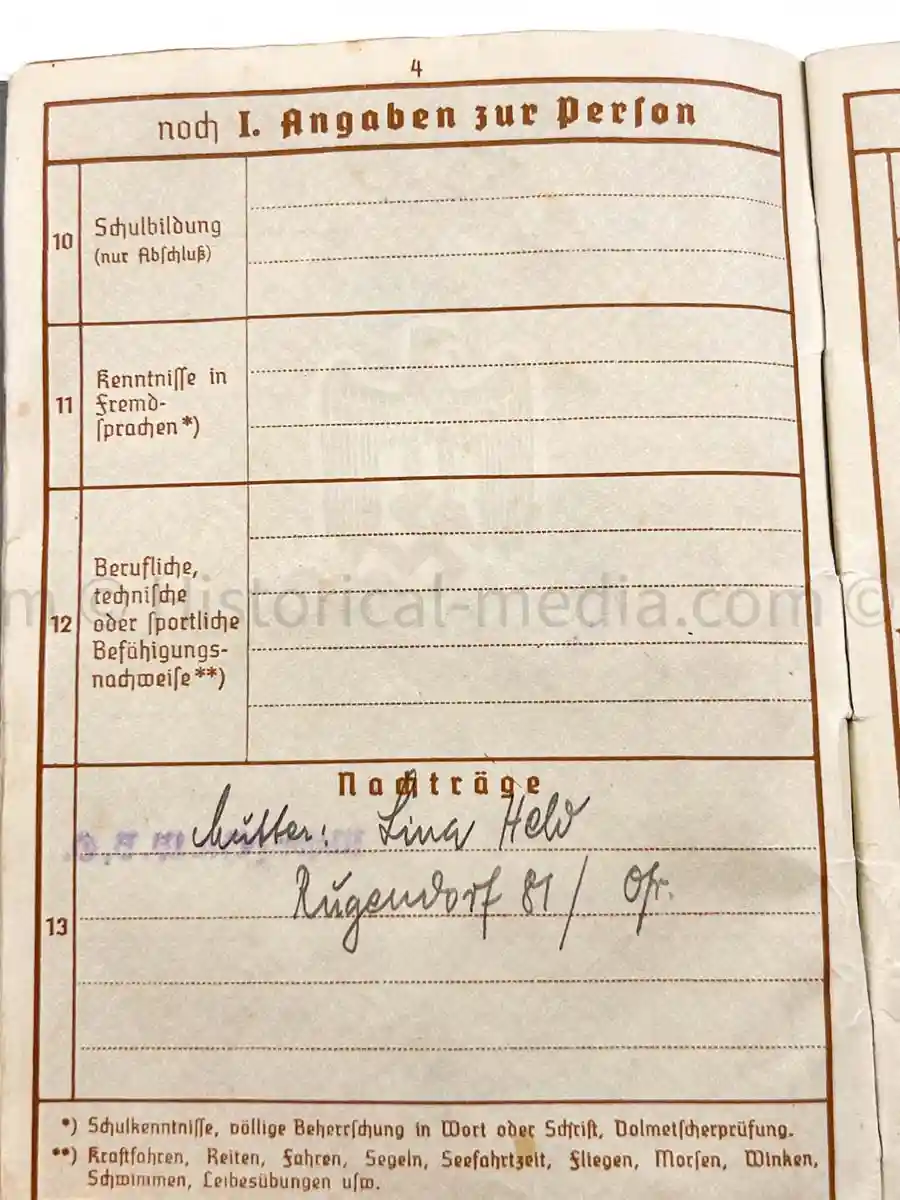 4
noch I. Angaben zur Person
10
Schulbildung
(nur Abschluß)
11
Kenntnisse in
Fremd-
sprachen *)
12
Berufliche,
technische
oder sportliche
Befähigungs-
nachweise **)
13
Nachträge
Mutter: Lina Held
Rugendorf 81 / Ofr.
*) Schulkenntnisse, völlige Beherrschung in Wort oder Schrift, Dolmetscherprüfung.
**) Kraftfahren, Reiten, Fahren, Segeln, Seefahrtzeit, Fliegen, Morsen, Winken,
Schwimmen, Leibesübungen usw.
m © Historical-media.com ©